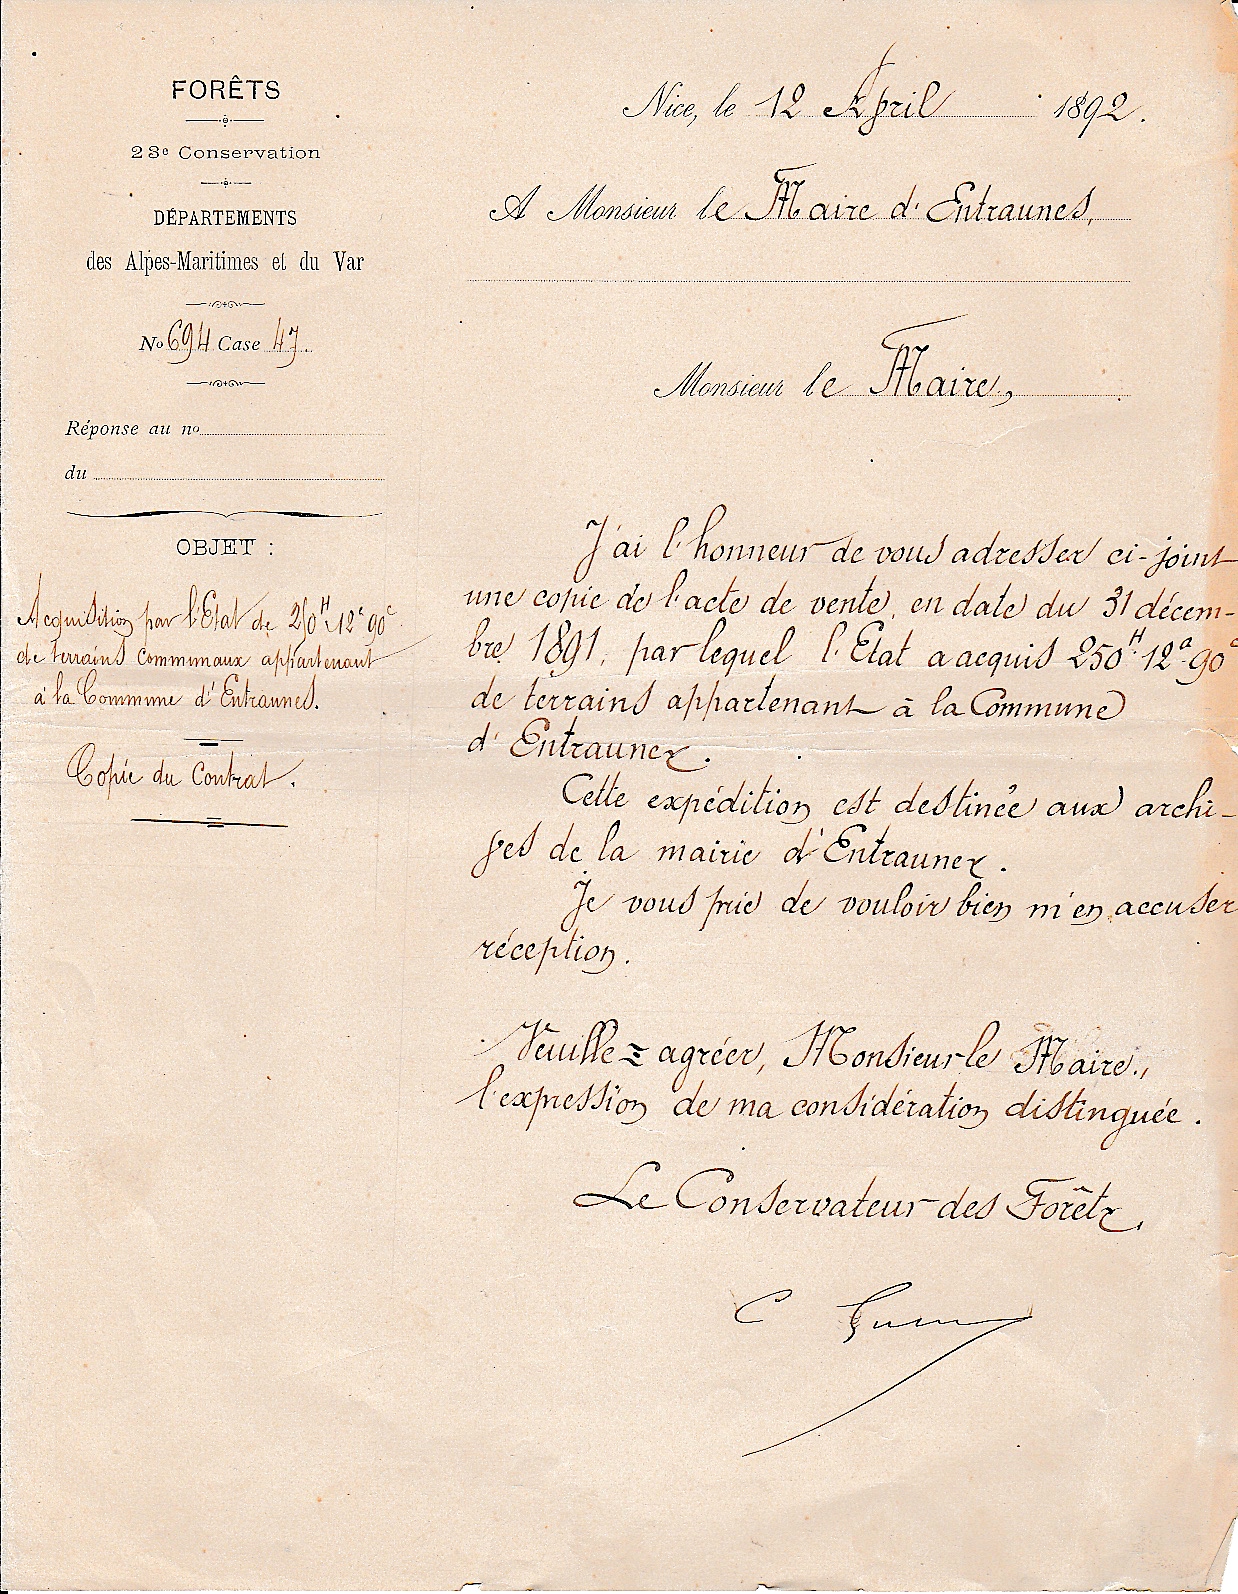 FORÊTS
23e Conservation
DÉPARTEMENTS
des Alpes-Maritimes et du Var
No 694 Case 47
Réponse au no
du
OBJET :
Acquisition par l'Etat de 250H 12a 90c
de terrains communaux appartenant
à la Commune d'Entraunes.
Copie du Contrat.
Nice, le 12 April 1892.
A Monsieur le Maire d'Entraunes,
Monsieur le Maire,
J'ai l'honneur de vous adresser ci-joint
une copie de l'acte de vente, en date du 31 décem-
bre 1891, par lequel l'Etat a acquis 250H 12a 90c
de terrains appartenant à la Commune
d'Entraunes.
Cette expédition est destinée aux archi-
ves de la mairie d'Entraunes.
Je vous prie de vouloir bien m'en accuser
réception.
Veuillez agréer, Monsieur le Maire,
l'expression de ma considération distinguée.
Le Conservateur des Forêts,
C